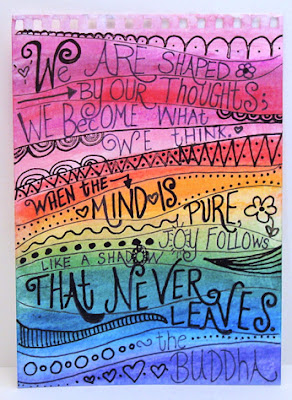 We ARE SHAPED
BY OUR THOUGHTS;
WE BECOME WHAT
WE THINK.
WHEN THE MIND IS PURE,
JOY FOLLOWS
LIKE A SHADOW
THAT NEVER
LEAVES.
~the
BUDDHA